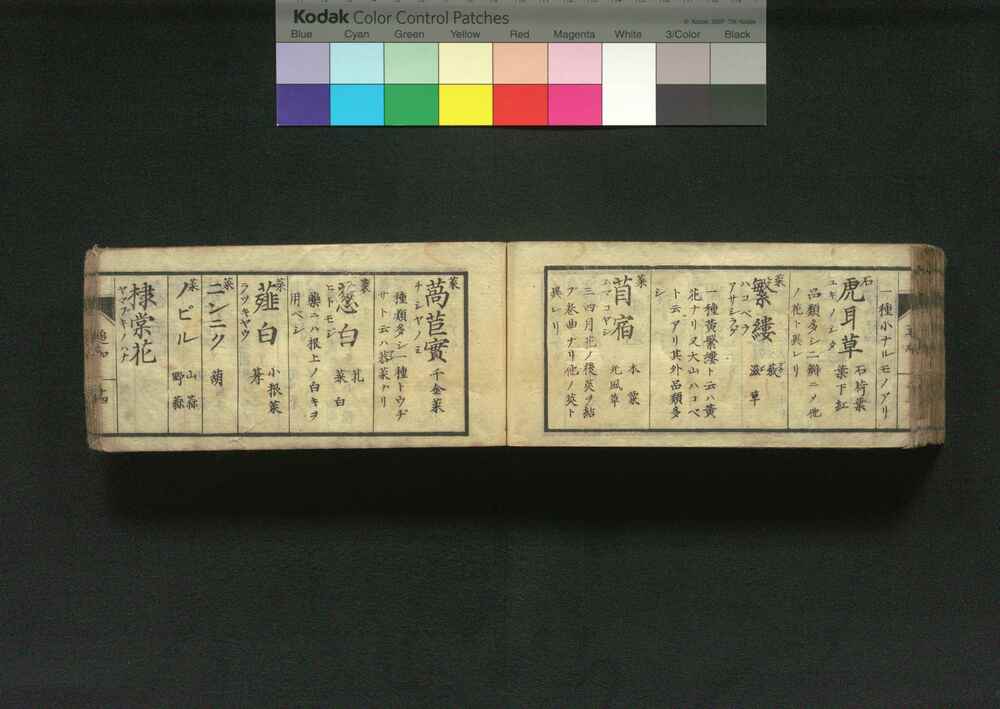 Kodak Color Control Patches
Blue Cyan Green Yellow Red Magenta White 3/Color Black
一種小ナルモノアリ
石
虎耳草 石荷葉
ユキノシタ 葉下紅
品類多シ二瓣ニノ他
ノ花ト異レリ
菜
繁縷
ハコベラ 滋草
アサシラゲ
一種黄繁縷ト云ハ黄
花ナリ又大山ハコベ
ト云アリ其外品類多
シ
菜
苜宿 木粟
コヤシ 光風草
三四月花ノ後莢ヲ結
ブ巻曲ナリ他ノ莢ト
異レリ
菜
萵苣實 千金菜
チシヤノミ
種類多シ一種トウヂ
サト云ハ菜ナリ
葱白
ヒトモジ 菜白
藥ニハ根上ノ白キヲ
用ベシ
菜
薤白 小根菜
ラツキヤウ
菜
ニンニク 葫
菜
ノビル 山蒜
野蒜
棣棠花
ヤマブキノハナ